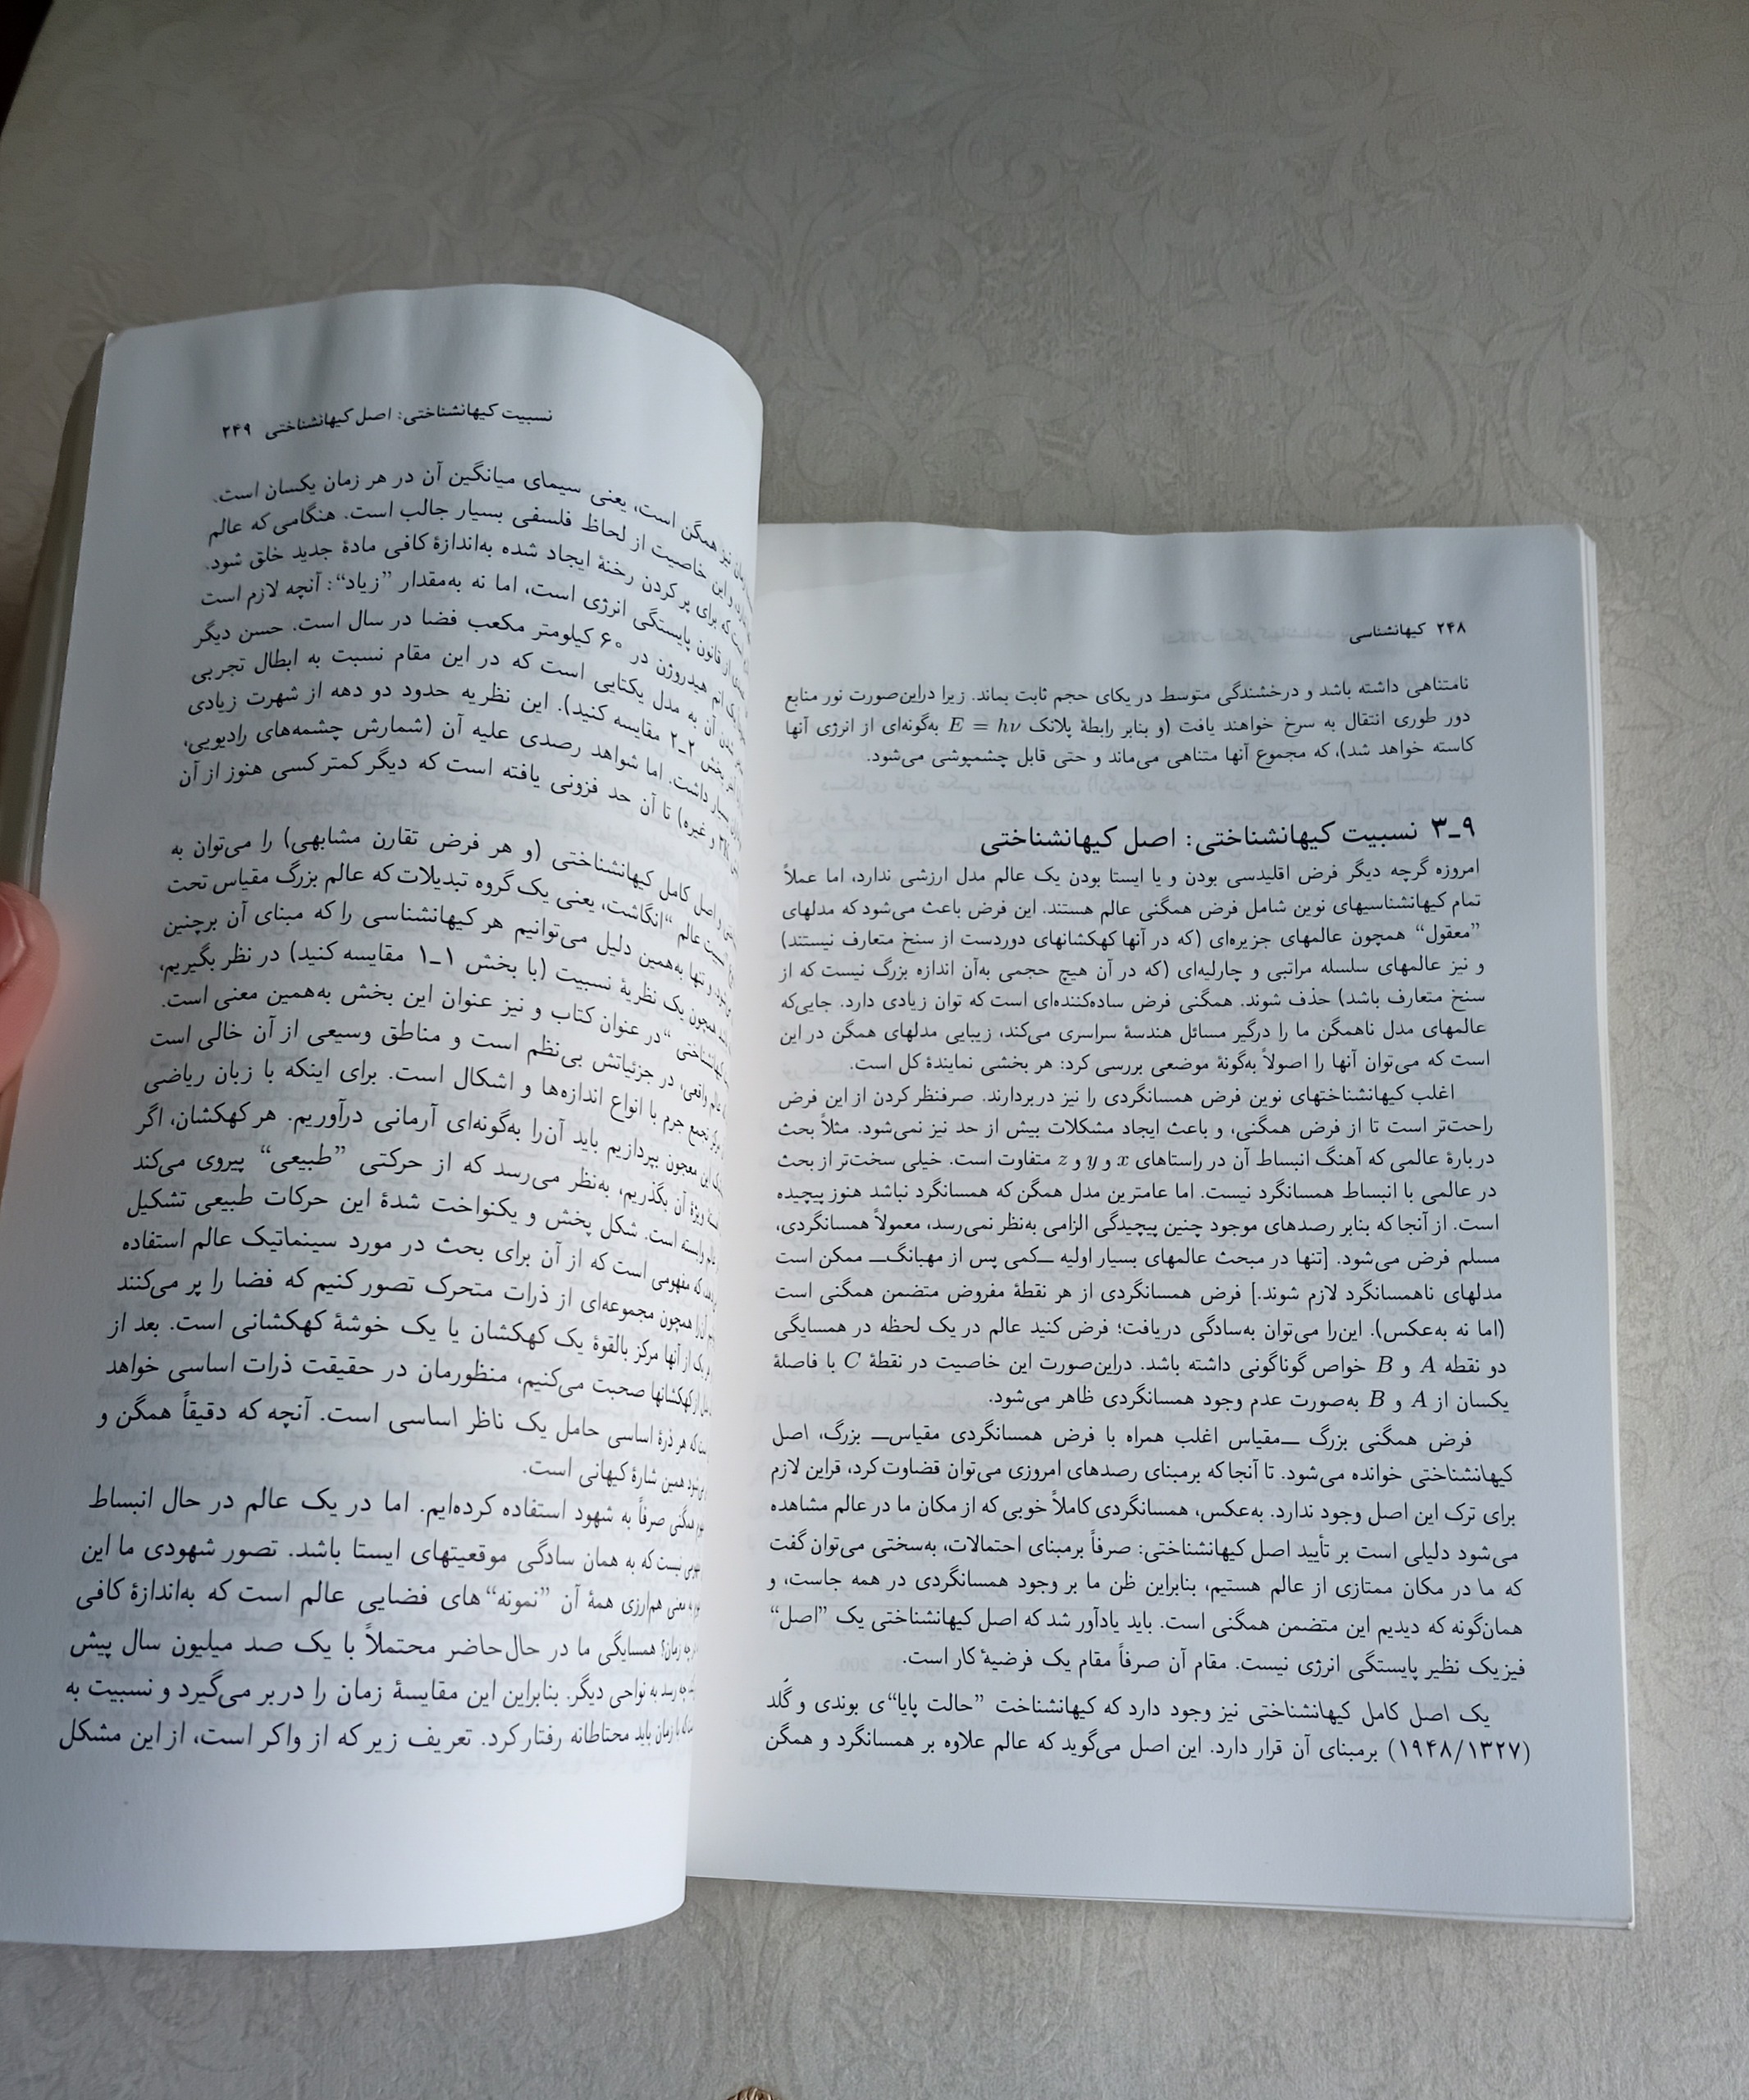 ۲۴۸ کیهانشناسی
نامتناهی داشته باشد و درخشندگی متوسط در یکای حجم ثابت بماند. زیرا دراین‌صورت نور منابع
دور طوری انتقال به سرخ خواهند یافت (و بنابر رابطهٔ پلانک E = hν به‌گونه‌ای از انرژی آنها
کاسته خواهد شد)، که مجموع آنها متناهی می‌ماند و حتی قابل چشمپوشی می‌شود.
۹ـ۳ نسبیت کیهانشناختی: اصل کیهانشناختی
امروزه گرچه دیگر فرض اقلیدسی بودن و یا ایستا بودن یک عالم مدل ارزشی ندارد، اما عملاً
تمام کیهانشناسیهای نوین شامل فرض همگنی عالم هستند. این فرض باعث می‌شود که مدلهای
”معقول“ همچون عالمهای جزیره‌ای (که در آنها کهکشانهای دوردست از سنخ متعارف نیستند)
و نیز عالمهای سلسله مراتبی و چارلیه‌ای (که در آن هیچ حجمی به‌آن اندازه بزرگ نیست که از
سنخ متعارف باشد) حذف شوند. همگنی فرض ساده‌کننده‌ای است که توان زیادی دارد. جایی‌که
عالمهای مدل ناهمگن ما را درگیر مسائل هندسهٔ سراسری می‌کند، زیبایی مدلهای همگن در این
است که می‌توان آنها را اصولاً به‌گونهٔ موضعی بررسی کرد: هر بخشی نمایندهٔ کل است.
اغلب کیهانشناختهای نوین فرض همسانگردی را نیز دربردارند. صرفنظر کردن از این فرض
راحت‌تر است تا از فرض همگنی، و باعث ایجاد مشکلات بیش از حد نیز نمی‌شود. مثلاً بحث
دربارهٔ عالمی که آهنگ انبساط آن در راستاهای x و y و z متفاوت است. خیلی سخت‌تر از بحث
در عالمی با انبساط همسانگرد نیست. اما عامترین مدل همگن که همسانگرد نباشد هنوز پیچیده
است. از آنجا که بنابر رصدهای موجود چنین پیچیدگی الزامی به‌نظر نمی‌رسد، معمولاً همسانگردی،
مسلم فرض می‌شود. [تنها در مبحث عالمهای بسیار اولیه ــ‌کمی پس از مهبانگ‌ــ ممکن است
مدلهای ناهمسانگرد لازم شوند.] فرض همسانگردی از هر نقطهٔ مفروض متضمن همگنی است
(اما نه به‌عکس). این‌را می‌توان به‌سادگی دریافت؛ فرض کنید عالم در یک لحظه در همسایگی
دو نقطه A و B خواص گوناگونی داشته باشد. دراین‌صورت این خاصیت در نقطهٔ C با فاصلهٔ
یکسان از A و B به‌صورت عدم وجود همسانگردی ظاهر می‌شود.
فرض همگنی بزرگ ــ‌مقیاس اغلب همراه با فرض همسانگردی مقیاس‌ــ بزرگ، اصل
کیهانشناختی خوانده می‌شود. تا آنجا که برمبنای رصدهای امروزی می‌توان قضاوت کرد، قراین لازم
برای ترک این اصل وجود ندارد. به‌عکس، همسانگردی کاملاً خوبی که از مکان ما در عالم مشاهده
می‌شود دلیلی است بر تأیید اصل کیهانشناختی: صرفاً برمبنای احتمالات، به‌سختی می‌توان گفت
که ما در مکان ممتازی از عالم هستیم، بنابراین ظن ما بر وجود همسانگردی در همه جاست، و
همان‌گونه که دیدیم این متضمن همگنی است. باید یادآور شد که اصل کیهانشناختی یک ”اصل“
فیزیک نظیر پایستگی انرژی نیست. مقام آن صرفاً مقام یک فرضیهٔ کار است.
یک اصل کامل کیهانشناختی نیز وجود دارد که کیهانشناخت ”حالت پایا“ی بوندی و گُلد
(۱۹۴۸/۱۳۲۷) برمبنای آن قرار دارد. این اصل می‌گوید که عالم علاوه بر همسانگرد و همگن
نسبیت کیهانشناختی: اصل کیهانشناختی ۲۴۹
نیز همگن است، یعنی سیمای میانگین آن در هر زمان یکسان است.
این خاصیت از لحاظ فلسفی بسیار جالب است. هنگامی که عالم
که برای پر کردن رخنهٔ ایجاد شده به‌اندازهٔ کافی مادهٔ جدید خلق شود.
از قانون پایستگی انرژی است، اما نه به‌مقدار ”زیاد“: آنچه لازم است
یک اتم هیدروژن در ۶۰ کیلومتر مکعب فضا در سال است. حسن دیگر
آن به مدل یکتایی است که در این مقام نسبت به ابطال تجربی
بخش ۲ـ۲ مقایسه کنید). این نظریه حدود دو دهه از شهرت زیادی
داشت. اما شواهد رصدی علیه آن (شمارش چشمه‌های رادیویی،
و غیره) تا آن حد فزونی یافته است که دیگر کمتر کسی هنوز از آن
اصل کامل کیهانشناختی (و هر فرض تقارن مشابهی) را می‌توان به
عالم “انگاشت، یعنی یک گروه تبدیلات که عالم بزرگ مقیاس تحت
و تنها به‌همین دلیل می‌توانیم هر کیهانشناسی را که مبنای آن برچنین
همچون یک نظریهٔ نسبیت (با بخش ۱ـ۱ مقایسه کنید) در نظر بگیریم،
کیهانشناختی “در عنوان کتاب و نیز عنوان این بخش به‌همین معنی است.
عالم واقعی، در جزئیاتش بی‌نظم است و مناطق وسیعی از آن خالی است
تجمع جرم با انواع اندازه‌ها و اشکال است. برای اینکه با زبان ریاضی
این معجون بپردازیم باید آن‌را به‌گونه‌ای آرمانی درآوریم. هر کهکشان، اگر
ویژهٔ آن بگذریم، به‌نظر می‌رسد که از حرکتی ”طبیعی“ پیروی می‌کند
وابسته است. شکل پخش و یکنواخت شدهٔ این حرکات طبیعی تشکیل
که مفهومی است که از آن برای بحث در مورد سینماتیک عالم استفاده
همچون مجموعه‌ای از ذرات متحرک تصور کنیم که فضا را پر می‌کنند
از آنها مرکز بالقوهٔ یک کهکشان یا یک خوشهٔ کهکشانی است. بعد از
از کهکشانها صحبت می‌کنیم، منظورمان در حقیقت ذرات اساسی خواهد
که هر ذرهٔ اساسی حامل یک ناظر اساسی است. آنچه که دقیقاً همگن و
همین شارهٔ کیهانی است.
همگنی صرفاً به شهود استفاده کرده‌ایم. اما در یک عالم در حال انبساط
نیست که به همان سادگی موقعیتهای ایستا باشد. تصور شهودی ما این
معنی هم‌ارزی همهٔ آن ”نمونه“های فضایی عالم است که به‌اندازهٔ کافی
چه زمان؟ همسایگی ما در حال‌حاضر محتملاً با یک صد میلیون سال پیش
چه رسد به نواحی دیگر. بنابراین این مقایسهٔ زمان را دربر می‌گیرد و نسبیت به
با زمان باید محتاطانه رفتار کرد. تعریف زیر که از واکر است، از این مشکل